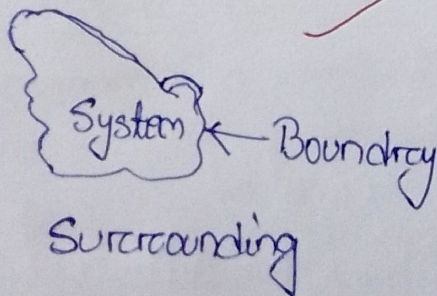 System
Boundry
Surrounding